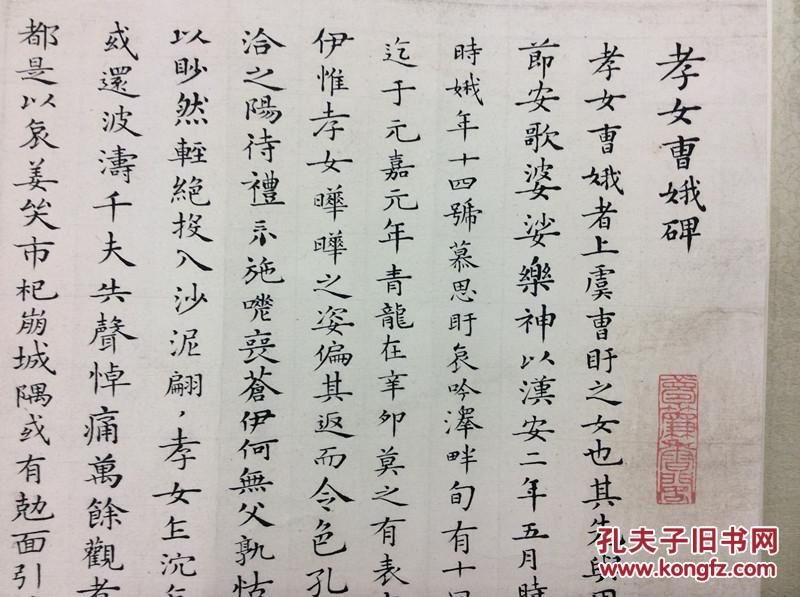 孝女曹娥碑
孝女曹娥者上虞曹盱之女也其先與周
節安歌婆娑樂神以漢安二年五月時
時娥年十四號慕思盱哀吟澤畔旬有十日
迄于元嘉元年青龍在辛卯莫之有表
伊惟孝女曄曄之姿偏其返而令色孔
洽之陽待禮未施嗟喪蒼伊何無父孰怙
以眇然輕絕投入沙泥翩〻孝女乍沉
或還波濤千夫失聲悼痛萬餘觀者
都是以哀姜哭市杞崩城隅或有勊面引
孔夫子旧书网
www.kongfz.com